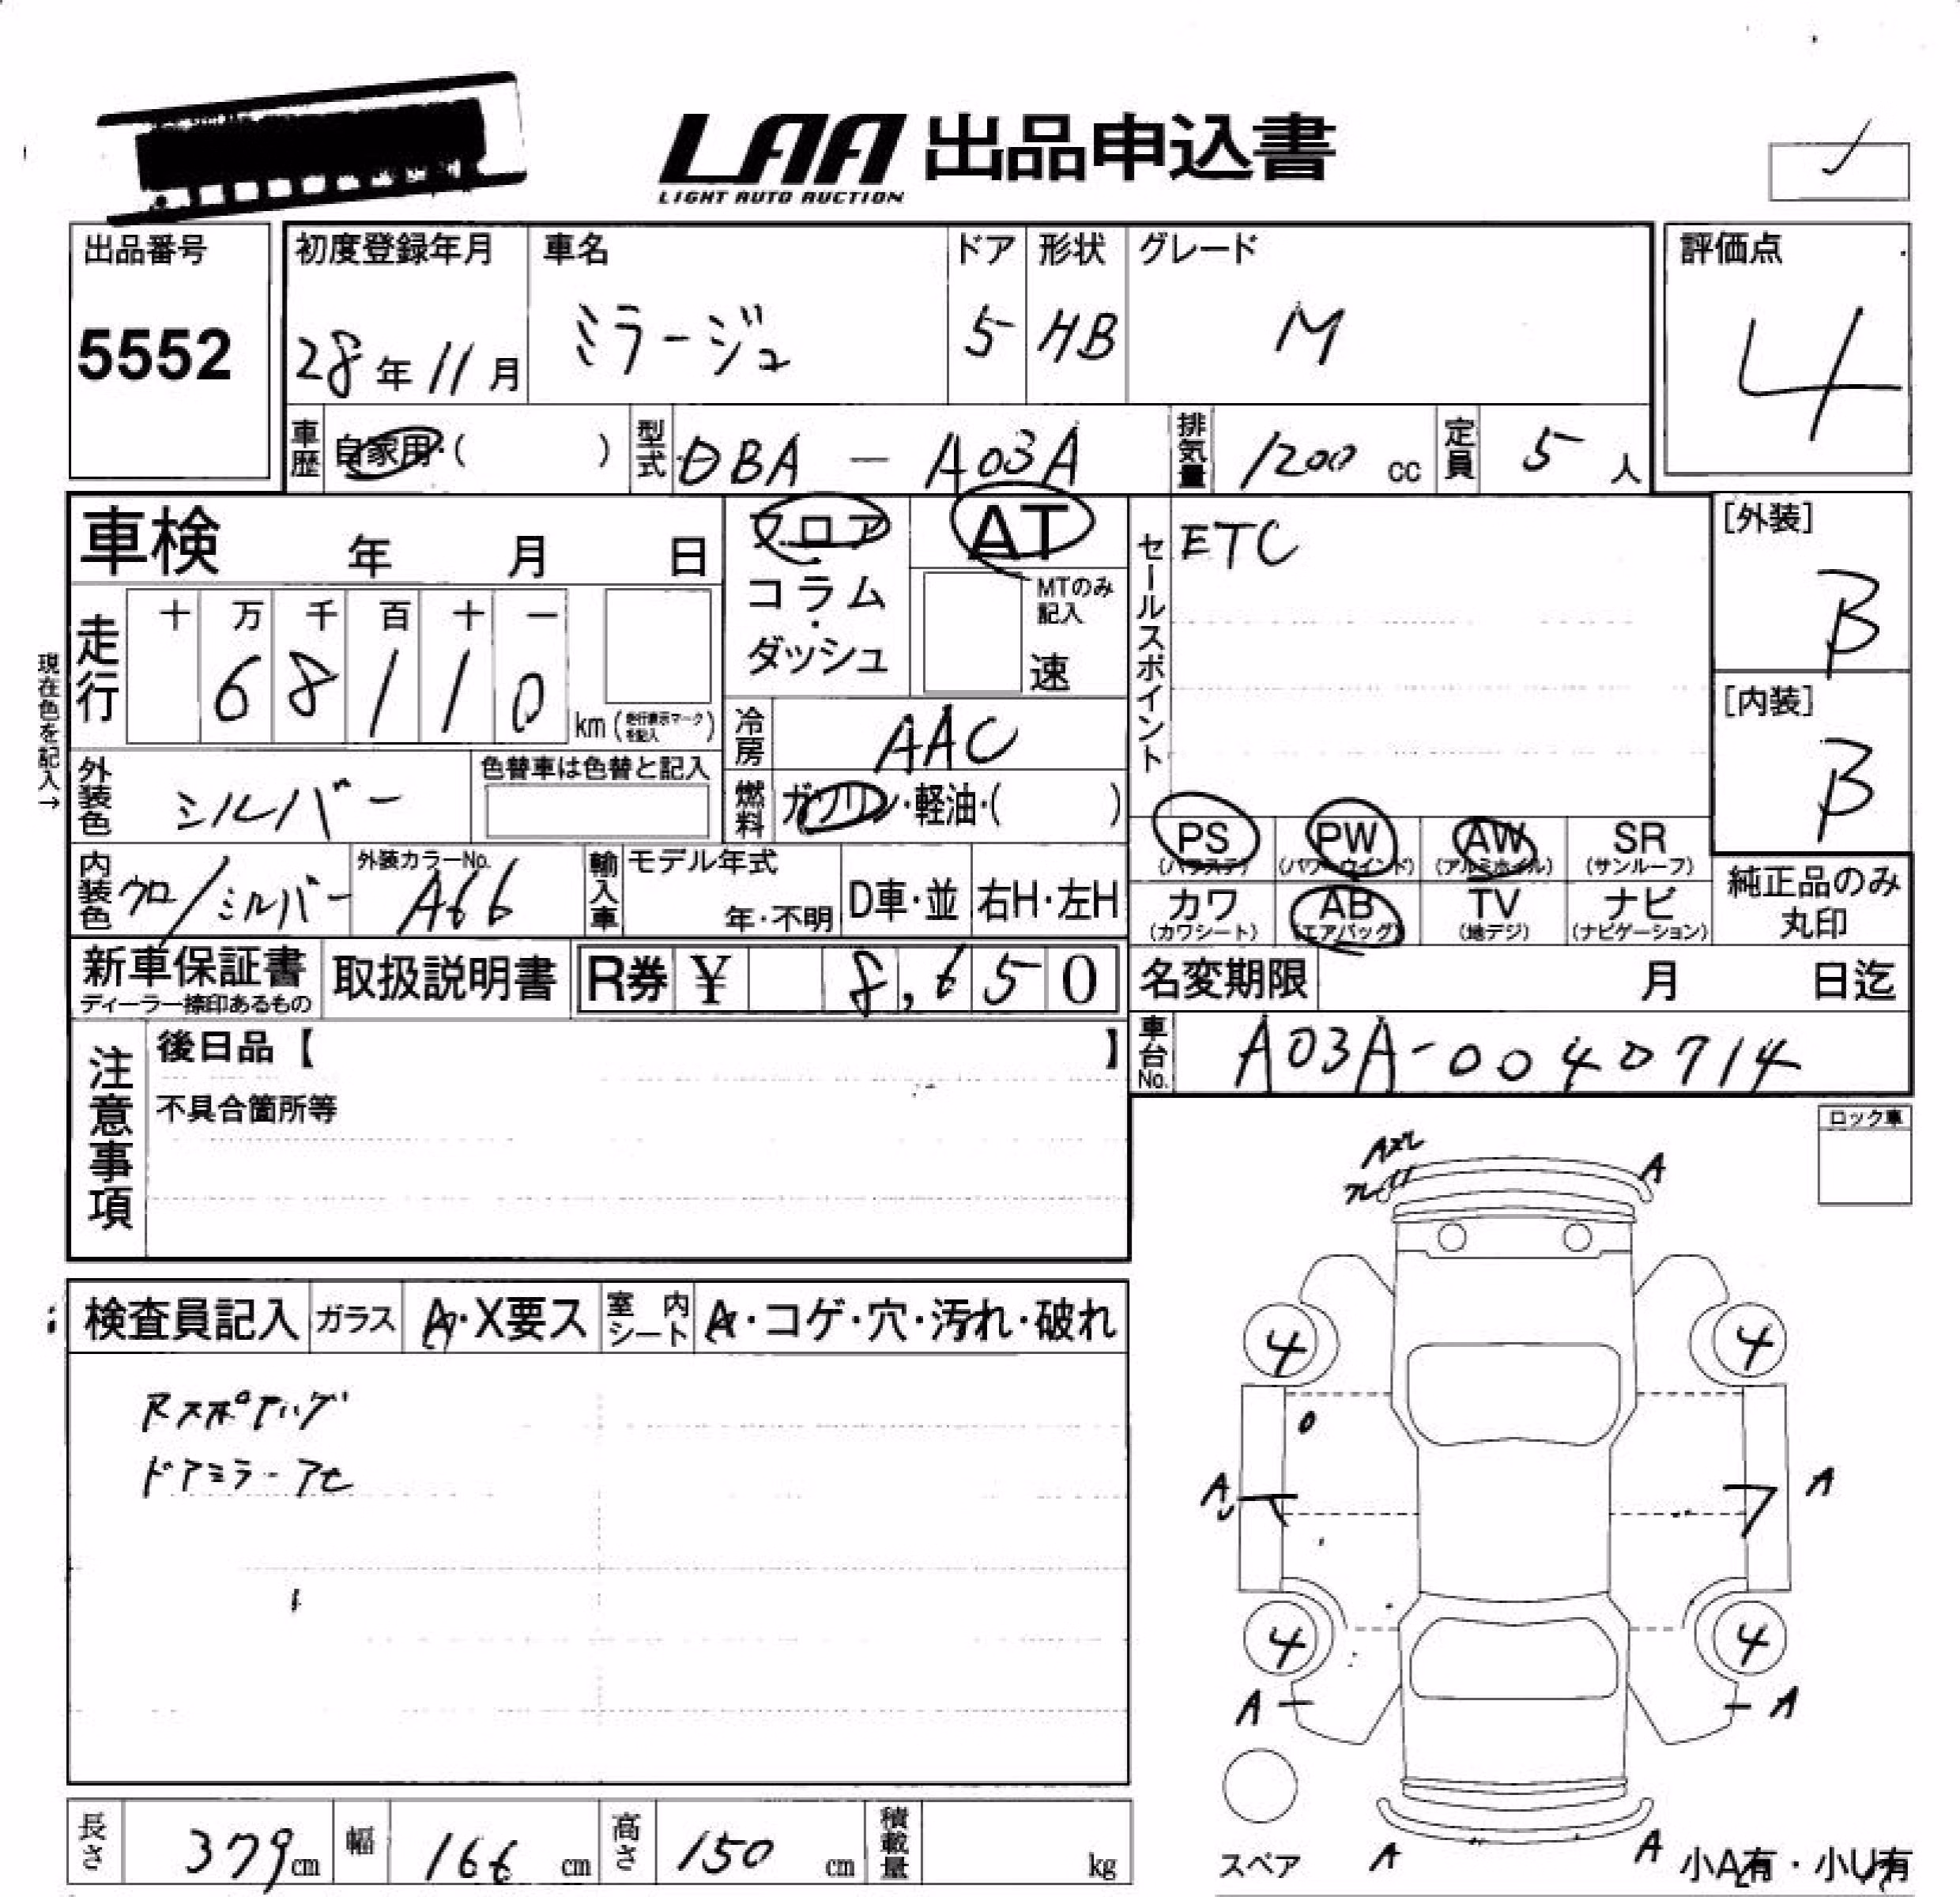 LAA 出品申込書
LIGHT AUTO AUCTION
出品番号
5552
初度登録年月
28年11月
車名
ミラージュ
ドア
5
形状
HB
グレード
M
評価点
4
車歴
自家用・( )
型式
DBA - A03A
排気量
1200 cc
定員
5 人
車検 年 月 日
フロア・コラム・ダッシュ
AT
MTのみ記入
速
セールスポイント
ETC
[外装]
B
[内装]
B
現在色を記入→
走行
十 万 千 百 十 一
6 8 1 1 0 km (走行表示マークを記入)
冷房
AAC
外装色
シルバー
色替車は色替と記入
燃料
ガソリン・軽油・( )
内装色
クロ/シルバー
外装カラーNo.
A66
輸入車
モデル年式
年・不明
D車・並
右H・左H
PS
(パワステ)
PW
(パワーウインド)
AW
(アルミホイル)
SR
(サンルーフ)
カワ
(カワシート)
AB
(エアバッグ)
TV
(地デジ)
ナビ
(ナビゲーション)
純正品のみ
丸印
新車保証書
ディーラー捺印あるもの
取扱説明書
R券 ¥ 8,650
名変期限 月 日迄
車台No.
A03A-0040714
注意事項
後日品【 】
不具合箇所等
ロック車
検査員記入
ガラス
A・X要ス
室内シート
A・コゲ・穴・汚れ・破れ
RスポアルグI
ドアミラーアセ
A
A
4
4
A
A
4
4
A
A
A
A
スペア
小A有・小U有
長さ
379cm
幅
166 cm
高さ
150 cm
積載量
kg